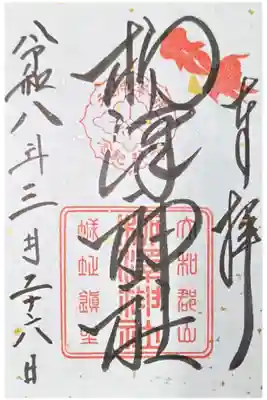 奉拝
大和郡山
柳澤神社
柳澤神社
城址鎮座
令和八年三月二十六日